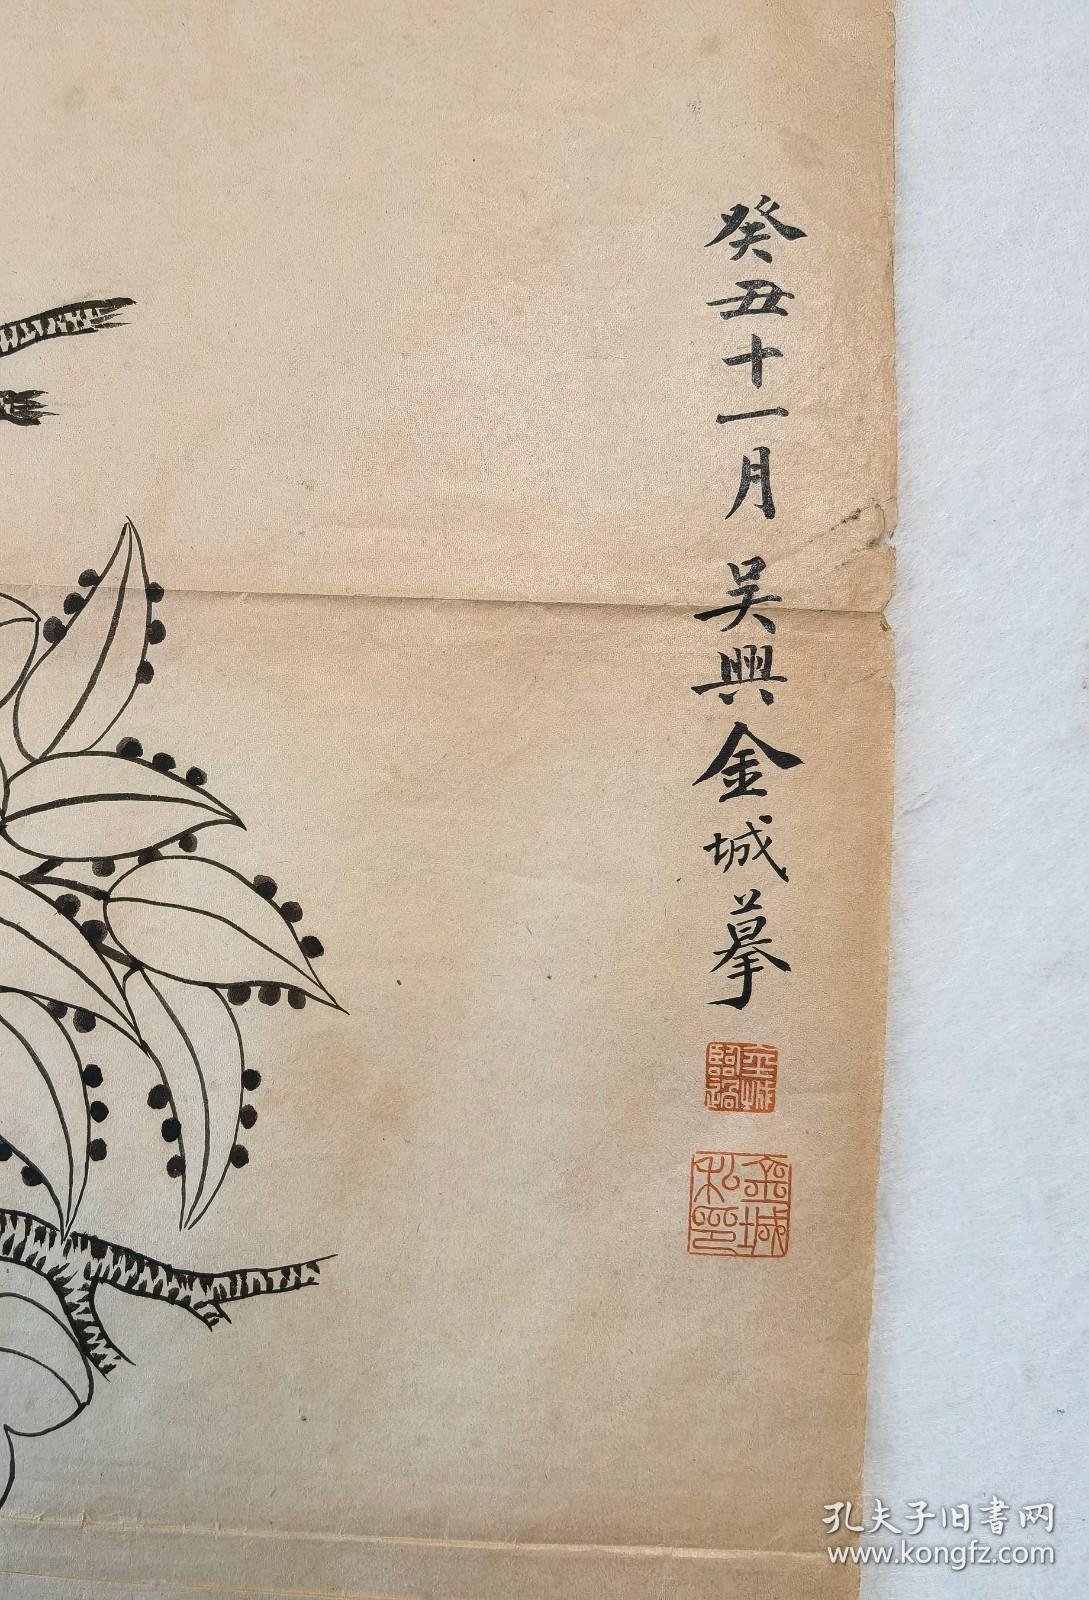 癸丑十一月吴興金城摹
金城臨摹
金城私印
孔夫子旧書网
www.kongfz.com